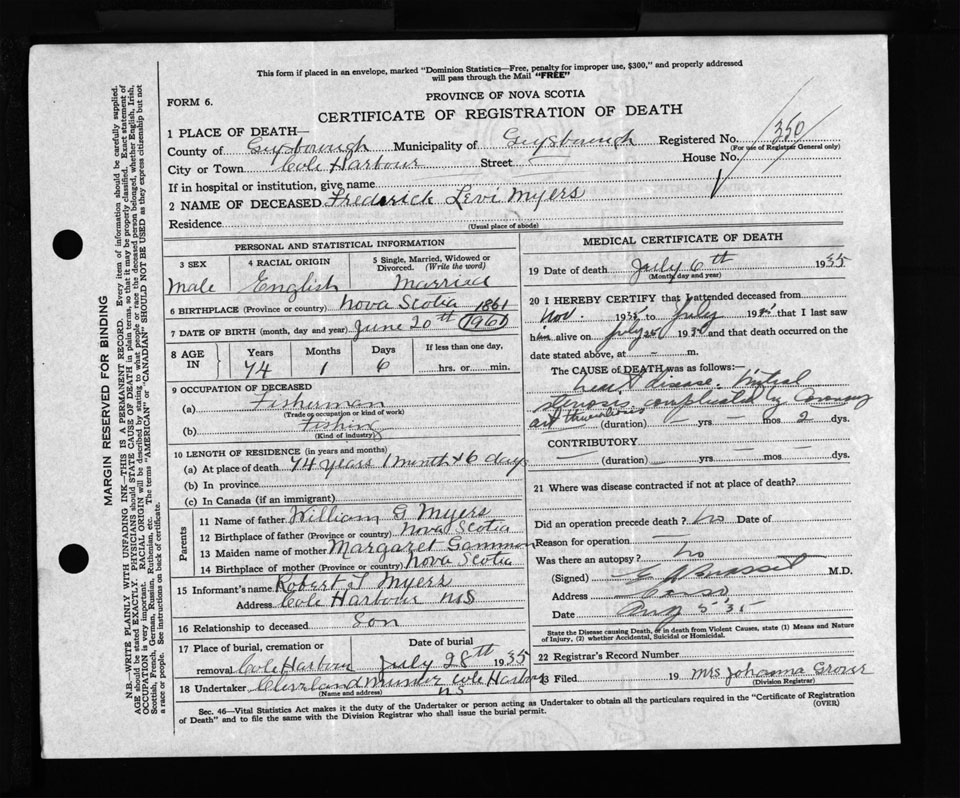 This form if placed in an envelope, marked "Dominion Statistics—Free, penalty for improper use, $300," and properly addressed
will pass through the Mail "FREE"
FORM 6.
PROVINCE OF NOVA SCOTIA
CERTIFICATE OF REGISTRATION OF DEATH
1 PLACE OF DEATH—
County of Guysborough Municipality of Guysborough Registered No. 350
(For use of Registrar General only)
City or Town Cole Harbour Street House No.
If in hospital or institution, give name
2 NAME OF DECEASED Frederick Levi Myers
Residence
(Usual place of abode)
PERSONAL AND STATISTICAL INFORMATION
3 SEX 4 RACIAL ORIGIN 5 Single, Married, Widowed or Divorced. (Write the word)
Male English Married
6 BIRTHPLACE (Province or country) Nova Scotia 1861
7 DATE OF BIRTH (month, day and year) June 20th 1961
8 AGE IN Years Months Days If less than one day,
74 1 6 hrs. or min.
9 OCCUPATION OF DECEASED
(a) Fisherman
(Trade or occupation or kind of work)
(b) Fishing
(Kind of industry)
10 LENGTH OF RESIDENCE (in years and months)
(a) At place of death 74 years 1 month & 6 days
(b) In province
(c) In Canada (if an immigrant)
Parents
11 Name of father William G Myers
12 Birthplace of father (Province or country) Nova Scotia
13 Maiden name of mother Margaret Gammon
14 Birthplace of mother (Province or country) Nova Scotia
15 Informant's name Robert T Myers
Address Cole Harbour NS
16 Relationship to deceased Son
17 Place of burial, cremation or Date of burial
removal Cole Harbour July 28th 1935
18 Undertaker Cleveland Munroe Cole Harbour
(Name and address) NS
MEDICAL CERTIFICATE OF DEATH
19 Date of death July 6th 1935
(Month, day and year)
20 I HEREBY CERTIFY that I attended deceased from
Nov. 193 to July 193 that I last saw
him alive on July 25 193 and that death occurred on the
date stated above, at – m.
The CAUSE of DEATH was as follows:—
heart disease. Mitral
stenosis, complicated by Coronary
(duration) — yrs — mos 2 dys.
CONTRIBUTORY
(duration) — yrs — mos — dys.
21 Where was disease contracted if not at place of death?
Did an operation precede death? No Date of
Reason for operation —
Was there an autopsy? No
(Signed) M.D.
Address Canso
Date Aug 5 35
State the Disease causing Death, or in death from Violent Causes, state (1) Means and Nature
of Injury, (2) whether Accidental, Suicidal or Homicidal.
22 Registrar's Record Number
23 Filed 19 Mrs Johanna Grover
(Division Registrar)
Sec. 46—Vital Statistics Act makes it the duty of the Undertaker or person acting as Undertaker to obtain all the particulars required in the "Certificate of Registration
of Death" and to file the same with the Division Registrar who shall issue the burial permit.
(OVER)
MARGIN RESERVED FOR BINDING
N.B.—WRITE PLAINLY WITH UNFADING INK—THIS IS A PERMANENT RECORD. Every item of information should be carefully supplied.
AGE should be stated EXACTLY. PHYSICIANS should STATE CAUSE OF DEATH in plain terms, so that it may be properly classified. Exact statement of
OCCUPATION is very important. RACIAL ORIGIN will be described by stating to what people or race the deceased person belonged, whether English, Irish,
Scottish, French, German, Russian, Ruthenian, etc. The terms "AMERICAN" or "CANADIAN" SHOULD NOT BE USED as they express citizenship but not
a race or people. See instructions on back of certificate.